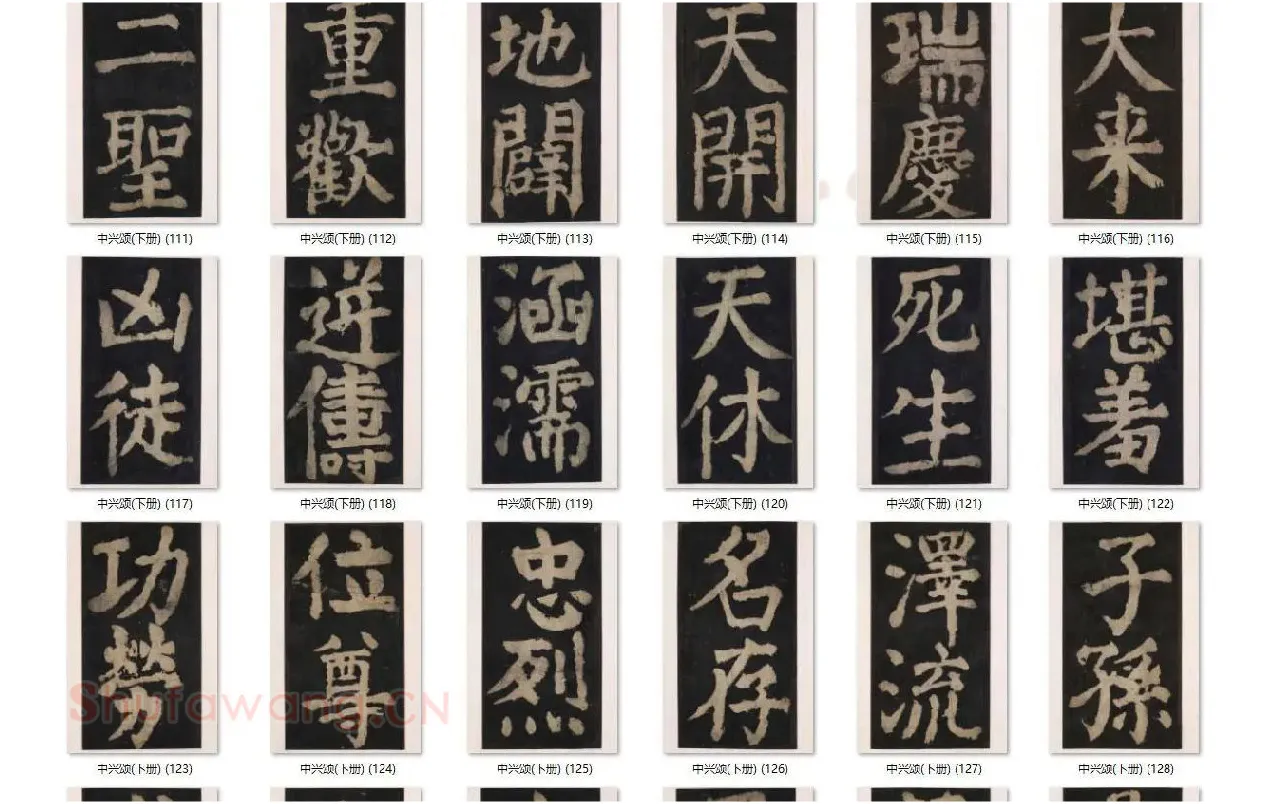 二聖
中兴颂(下册) (111)
重歡
中兴颂(下册) (112)
地闢
中兴颂(下册) (113)
天開
中兴颂(下册) (114)
瑞慶
中兴颂(下册) (115)
大来
中兴颂(下册) (116)
凶徒
中兴颂(下册) (117)
逆儔
中兴颂(下册) (118)
涵濡
中兴颂(下册) (119)
天休
中兴颂(下册) (120)
死生
中兴颂(下册) (121)
堪羞
中兴颂(下册) (122)
功勞
中兴颂(下册) (123)
位尊
中兴颂(下册) (124)
忠烈
中兴颂(下册) (125)
名存
中兴颂(下册) (126)
澤流
中兴颂(下册) (127)
子孫
中兴颂(下册) (128)
Shufawang.CN